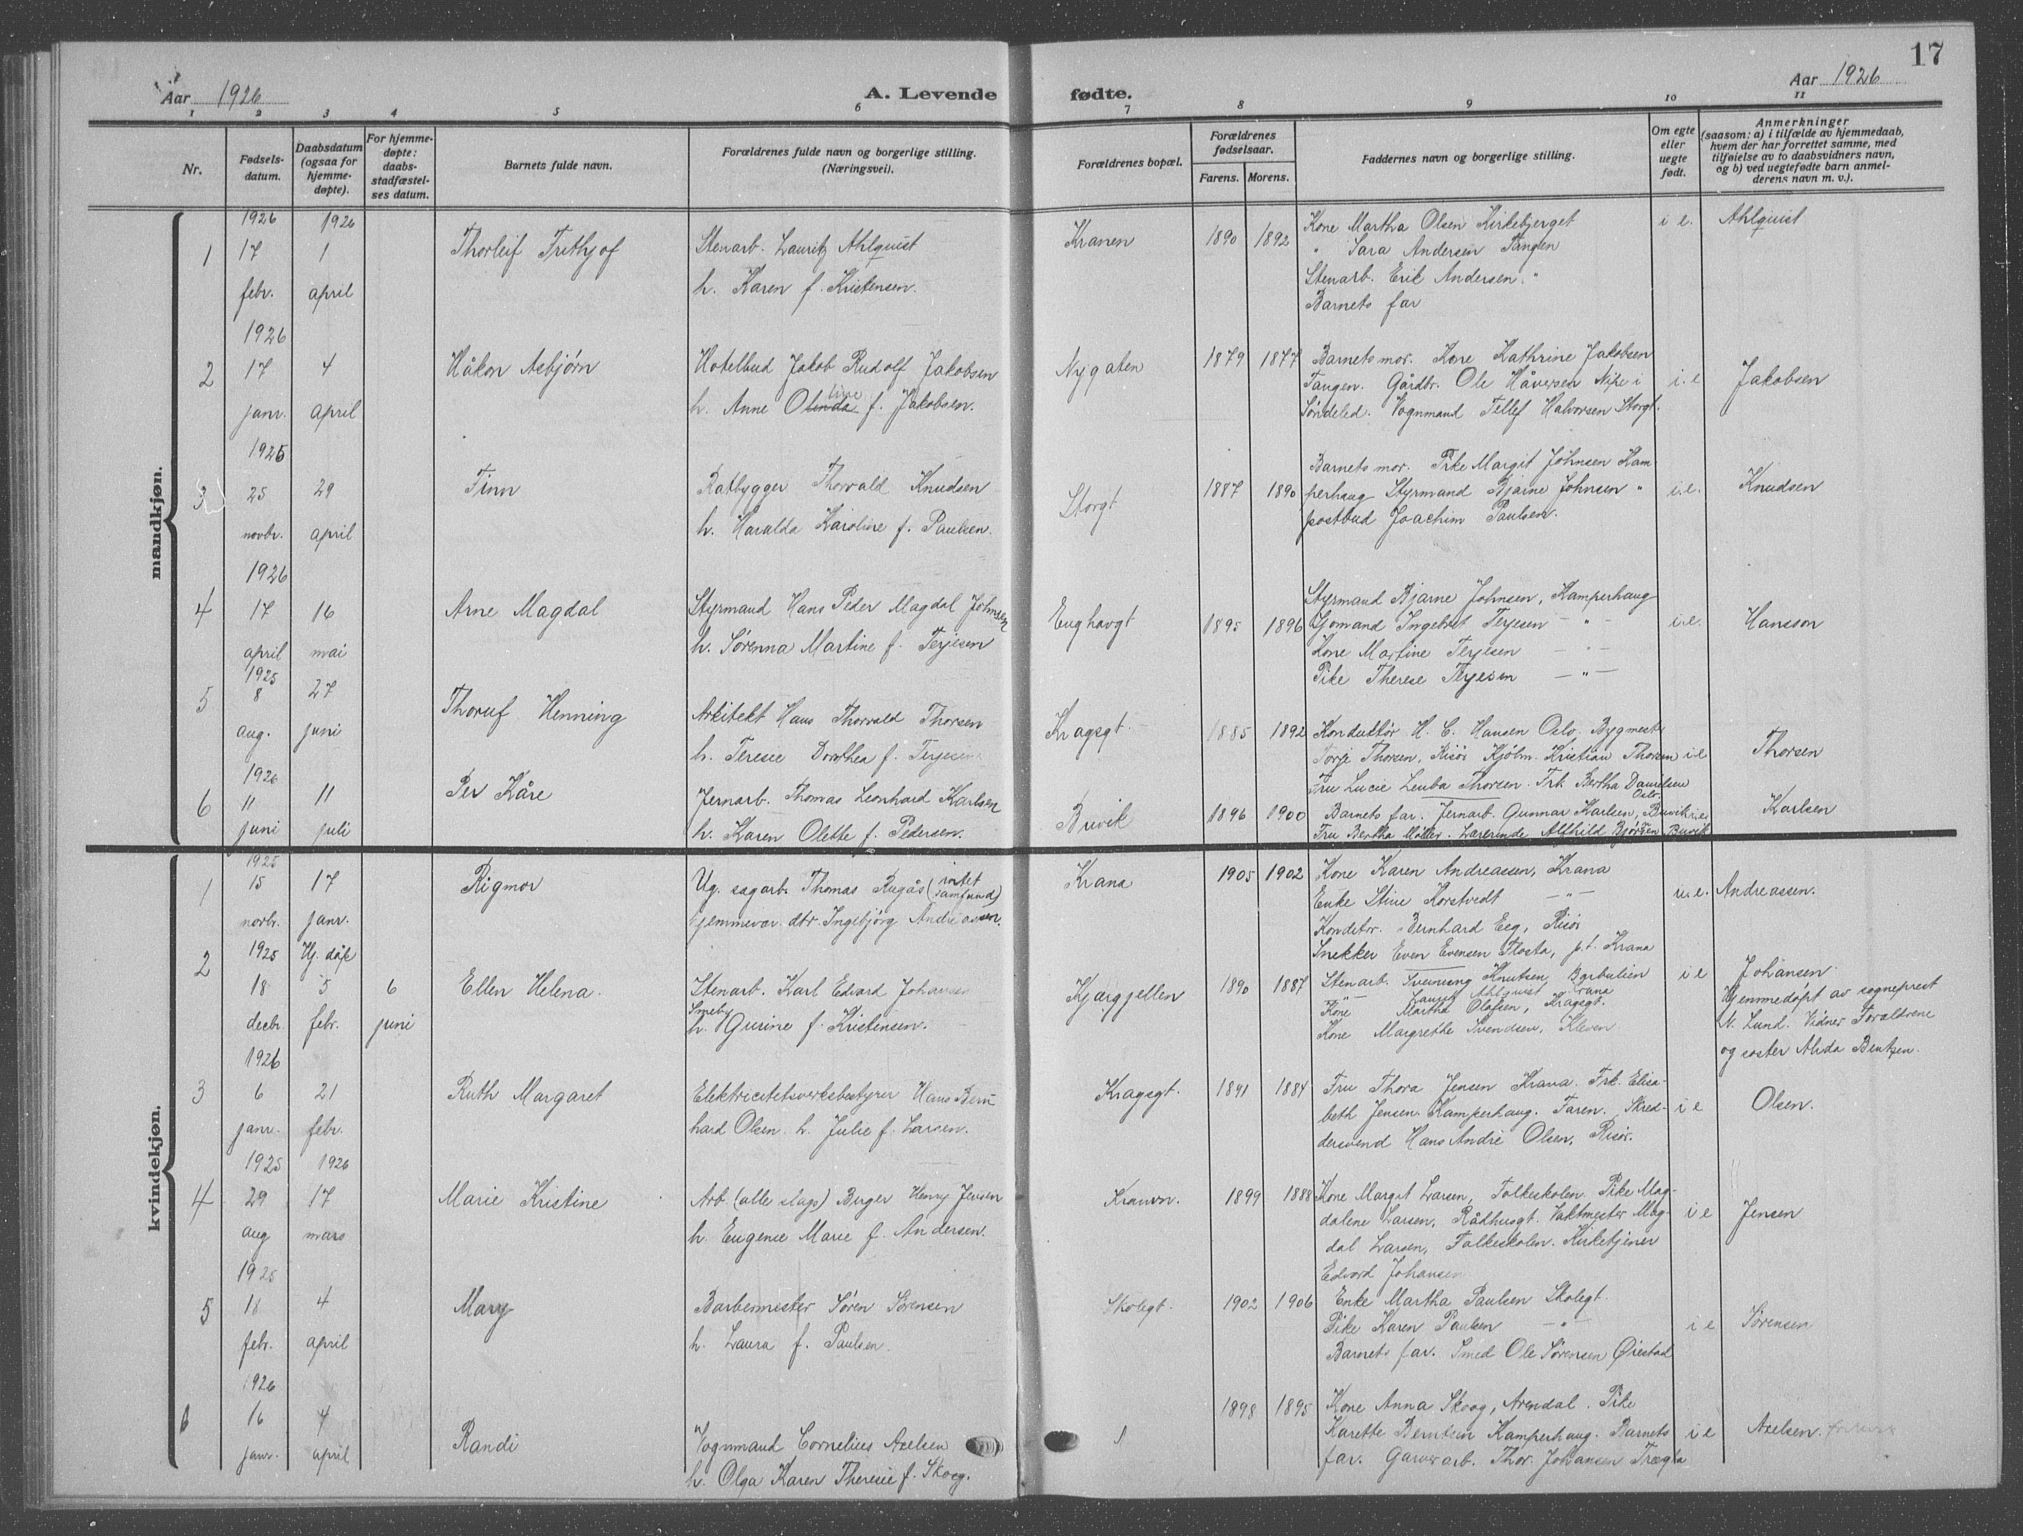 17
Aar 1926 A. Levende fødte. Aar 1926
1 2 3 4 5 6 7 8 9 10 11
Nr.
Fødsels-
datum.
Daabsdatum
(ogsaa for
hjemme-
døpte).
For hjemme-
døpte:
daabs-
stadfæstel-
ses datum.
Barnets fulde navn.
Forældrenes fulde navn og borgerlige stilling.
(Næringsvei).
Forældrenes bopæl.
Forældrenes
fødselsaar.
Farens. Morens.
Faddernes navn og borgerlige stilling.
Om egte
eller
uegte
født.
Anmerkninger
(saasom: a) i tilfælde av hjemmedaab,
hvem der har forrettet samme, med
tilføielse av to daabsvidners navn,
og b) ved uegtefødte barn anmel-
derens navn m. v.).
mandkjøn.
1
1926
17
febr.
1926
1
april
Thorleif Frithjof
Stenarb. Lauritz Ahlquist
h. Karen f. Kristensen.
Kranen
1890 1892
Kone Martha Olsen Kirkebjerget
" Sara Andersen Tangen
Stenarb. Erik Andersen "
Barnets far
i e.
Ahlquist
2
1926
17
janr.
4
april
Håkon Asbjørn
Hotelbud Jakob Rudolf Jakobsen
line
h. Anne Olinda f. Jakobsen.
Nygaten
1879 1877
Barnets mor. Kone Kathrine Jakobsen
Tangen. Gårdbr. Ole Håversen Nipe i
Søndeled. Vognmand Tellef Halvorsen Storgt.
i. e
Jakobsen
3
1925
25
novbr.
29
april
Finn
Båtbygger Thorvald Knudsen
h. Haralda Karoline f. Paulsen.
Storgt
1887 1890
Barnets mor. Pike Margit Johnsen Kam-
perhaug Styrmand Bjarne Johnsen "
postbud Joachim Paulsen.
i. e.
Knudsen
4
1926
17
april
16
mai
Arne Magdal
Styrmand Hans Peder Magdal Johnsen
h. Sørenna Martine f. Terjesen
Enghavgt
1895 1896
Styrmand Bjarne Johnsen, Kamperhaug
Sjømand Ingebret Terjesen - " -
Kone Martine Terjesen - " -
Pike Therese Terjesen - " -
i. e.
Hansson
5
1925
8
aug.
27
juni
Thoruf Henning
Arkitekt Hans Thorvald Thorsen
h. Teresie Dorothea f. Terjesen
Kragsgt.
1885 1892
Konduktør H. C. Hansen Oslo, Bygmest.
Torje Thorsen, Risør Kjøbm. Kristian Thorsen
Fru Lucie Leuba Thorsen. Frk. Bertha Danielsen
Oslo
i e
Thorsen
6
1926
11
juni
11
juli
Per Kåre
Jernarb. Thomas Leonhard Karlsen
h. Karen Olette f. Pedersen.
Buvik
1896 1900
Barnets far. Jernarb. Gunnar Karlsen, Buvik
Fru Bertha Møller. Lærerinde Alfhild Bjørgen Buvik
i e
Karlsen
kvindekjøn.
1
1925
15
novbr.
17
janr.
Rigmor
Ug. sagarb. Thomas Rugås (intet
samfund)
hjemmevær. dtr. Ingebjørg Andreassen.
Krana
1905 1902
Kone Karen Andreassen, Krana
Enke Stine Korstvedt - " -
Konditor. Bernhard Eeg, Risør
Snekker Even Evensen Flosta, p. t. Krana
u. e.
Andreassen.
2
1925
18
decbr.
Hj. døpt
5
febr.
6
juni
Ellen Helena.
Stenarb. Karl Edvard Johansen
Smeby
h. Gusine f. Kristensen.
Kjærgjellen
1890 1887
Stenarb. Sveinung Knutsen Barbulien
- " - Lauritz Ahlquist Crana
Kone Martha Olafsen, Kragsgt.
Kone Margrethe Svendsen, Kleven
i e
Johansen.
Hjemmedøpt av sogneprest
N. Lund. Vidner Forældrene
og søster Alida Bentzen.
3
1926
6
janr.
21
febr.
Ruth Margaret
Elektricitetsverksbestyrer Hans Bern
hard Olsen h. Julie f. Larsen.
Kragsgt.
1891 1884
Fru Thora Jensen Krana. Frk. Elisa-
beth Jensen Kamperhaug. Faren. Skred-
dersvend Hans André Olsen, Risør.
i e
Olsen.
4
1925
29
aug
1926
17
mars
Marie Kristine
Arb (alle slags) Birger Henry Jensen
h. Eugenie Marie f. Andersen.
Kranen.
1899 1888
Kone Margit Larsen, Folkeskolen. Pike Mag-
dalene Larsen, Rådhusgt. Vaktmester Mag-
dal Larsen, Folkeskolen. Kirketjener
Edvard Johansen
i e
Jensen
5
1925
18
febr.
4
april
Mary
Barbermester Søren Sørensen
h. Laura f. Paulsen.
Skolegt.
1902 1906
Enke Martha Paulsen Skolegt.
Pike Karen Paulsen - " -
Barnets far. Smed Ole Sørensen Ørestad
i e
Sørensen
6
1926
16
janr.
4
april
Randi
Vognmand Cornelius Axelsen
h. Olga Karen Therese f. Skoog.
1898 1895
Kone Anna Skoog, Arendal. Pike
Karette Berntsen Kamperhaug. Barnets
far. Garverarb. Thor Johansen
i e
Axelsen.